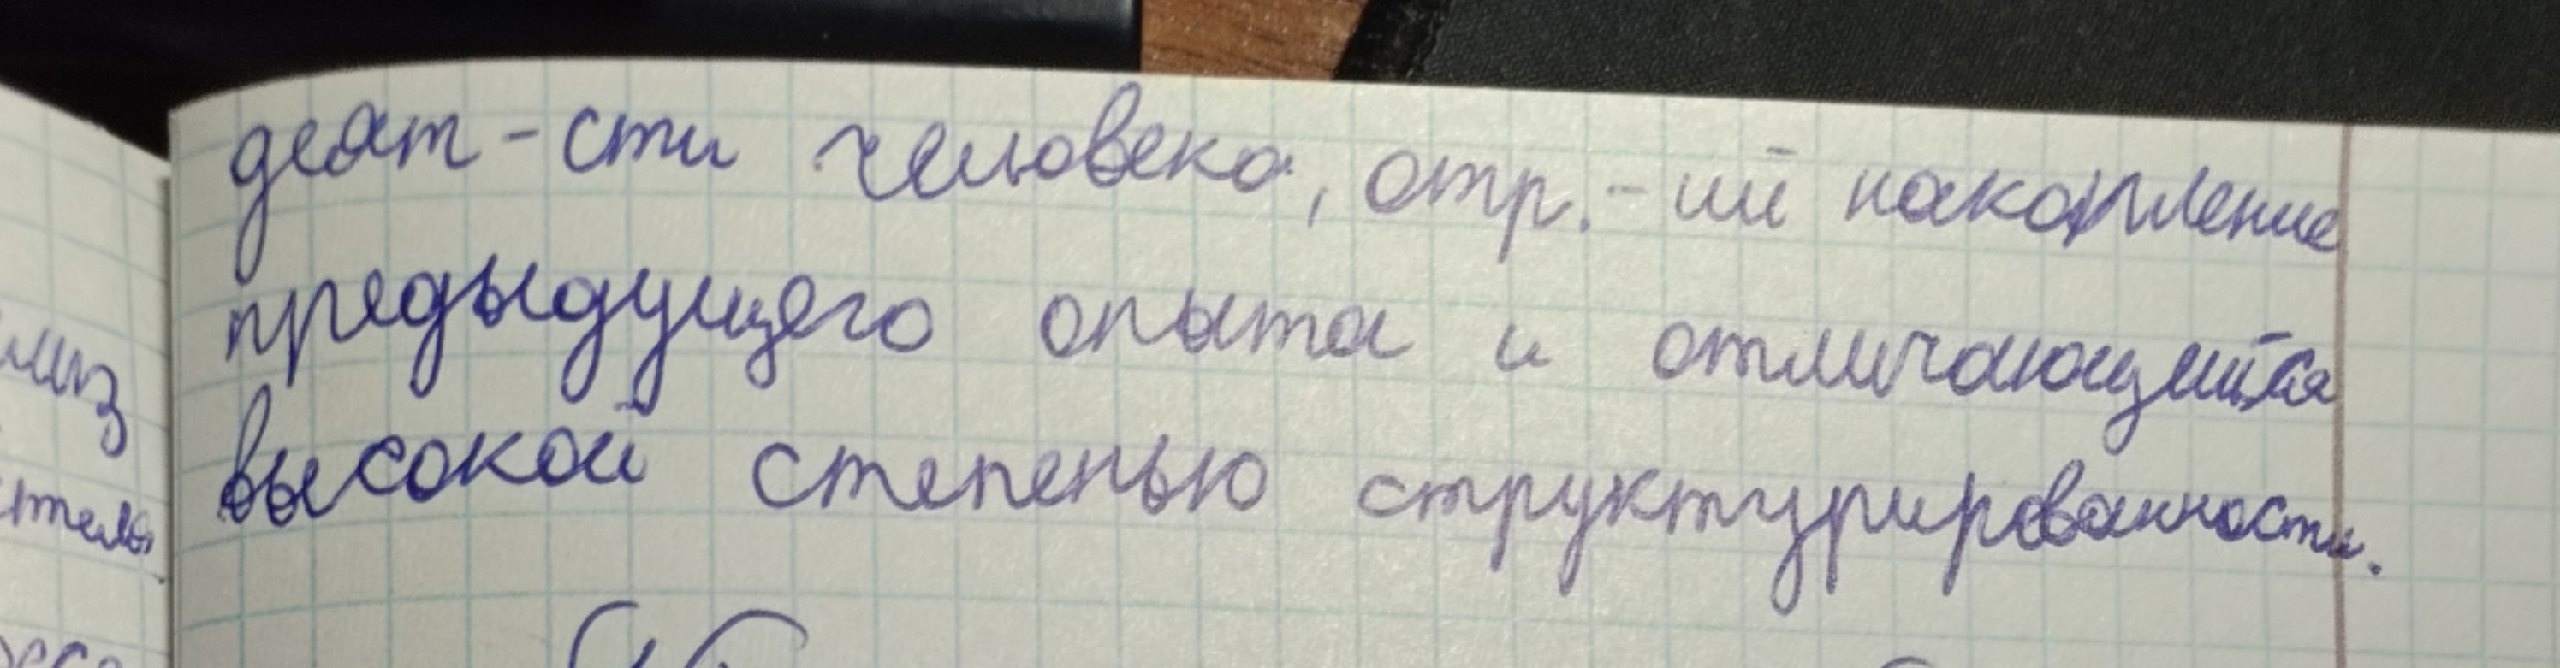 деят-сти человека, отр.-ий накопление
предыдущего опыта и отличающийся
высокой степенью структурированности.